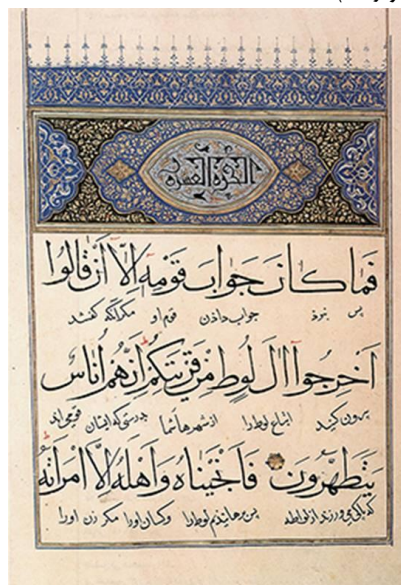 الجزء العشرون
فَمَا كَانَ جَوَابَ قَوْمِهِ اِلَّا اَنْ قَالُوا
پس نبود جواب دادن قوم او مگر آنکه گفتند
اَخْرِجُوا اٰلَ لُوطٍ مِنْ قَرْيَتِكُمْ اِنَّهُمْ اُنَاسٌ
بیرون کنید اتباع لوط را از شهرهاء شما بدرستی که ایشان قومی اند
يَتَطَهَّرُونَ فَاَنْجَيْنَاهُ وَاَهْلَهُ اِلَّا امْرَاَتَهُ
که پاکی می ورزند از لواطه پس برهانیدیم لوط را و کسان او را مگر زن او را